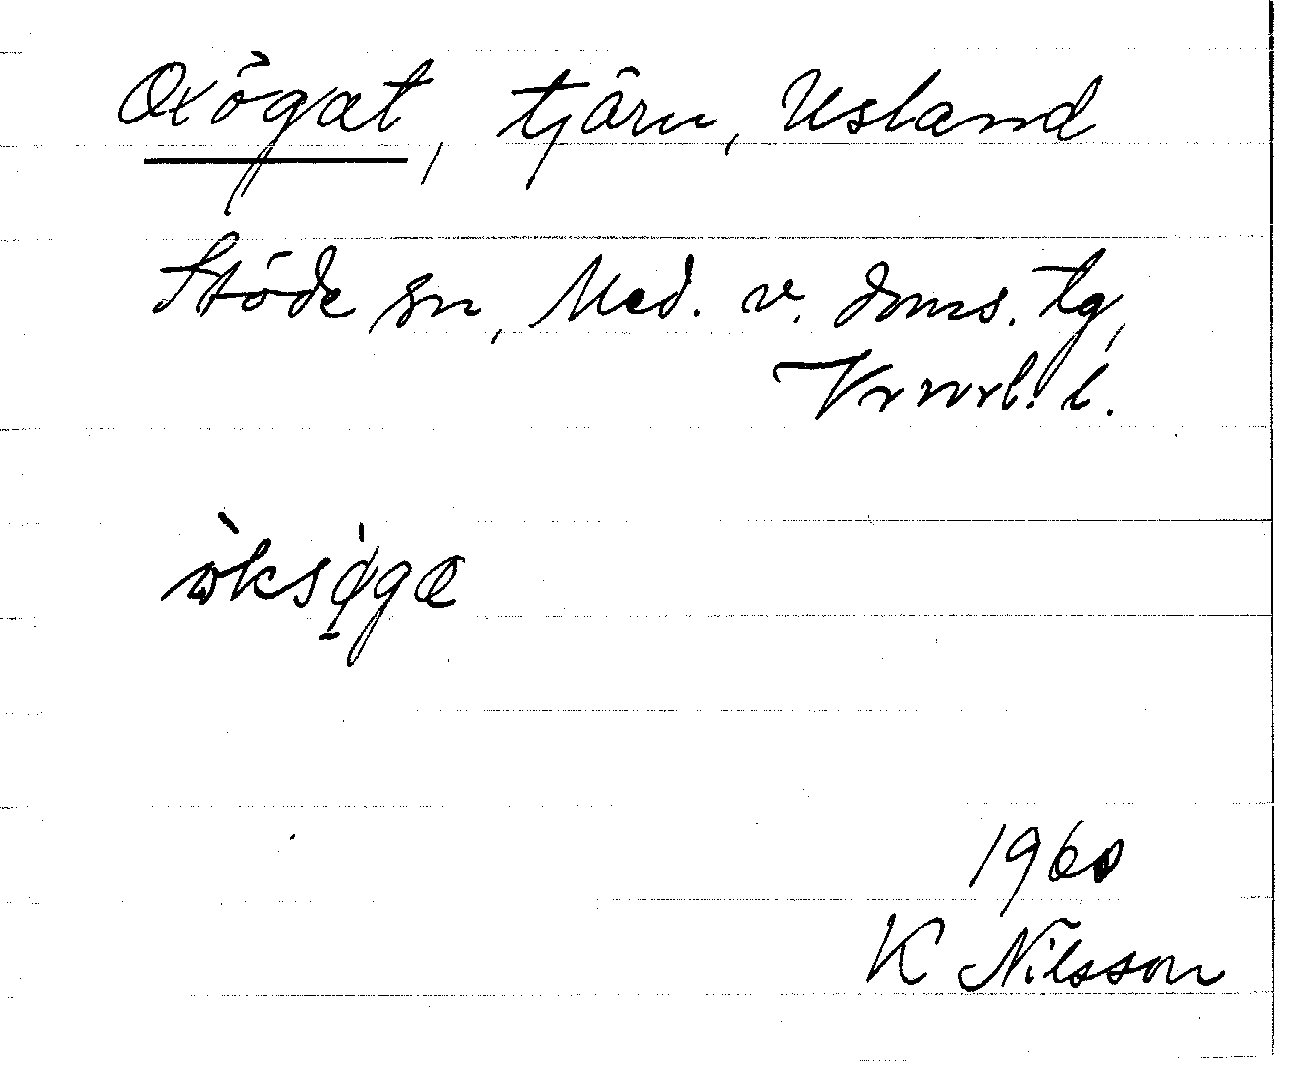 Oxögat, tjärn, Usland
Stöde sn, Med. v. doms. tg,
Vrnrl. l.
òksø̱̍gæ
1960
K Nilsson